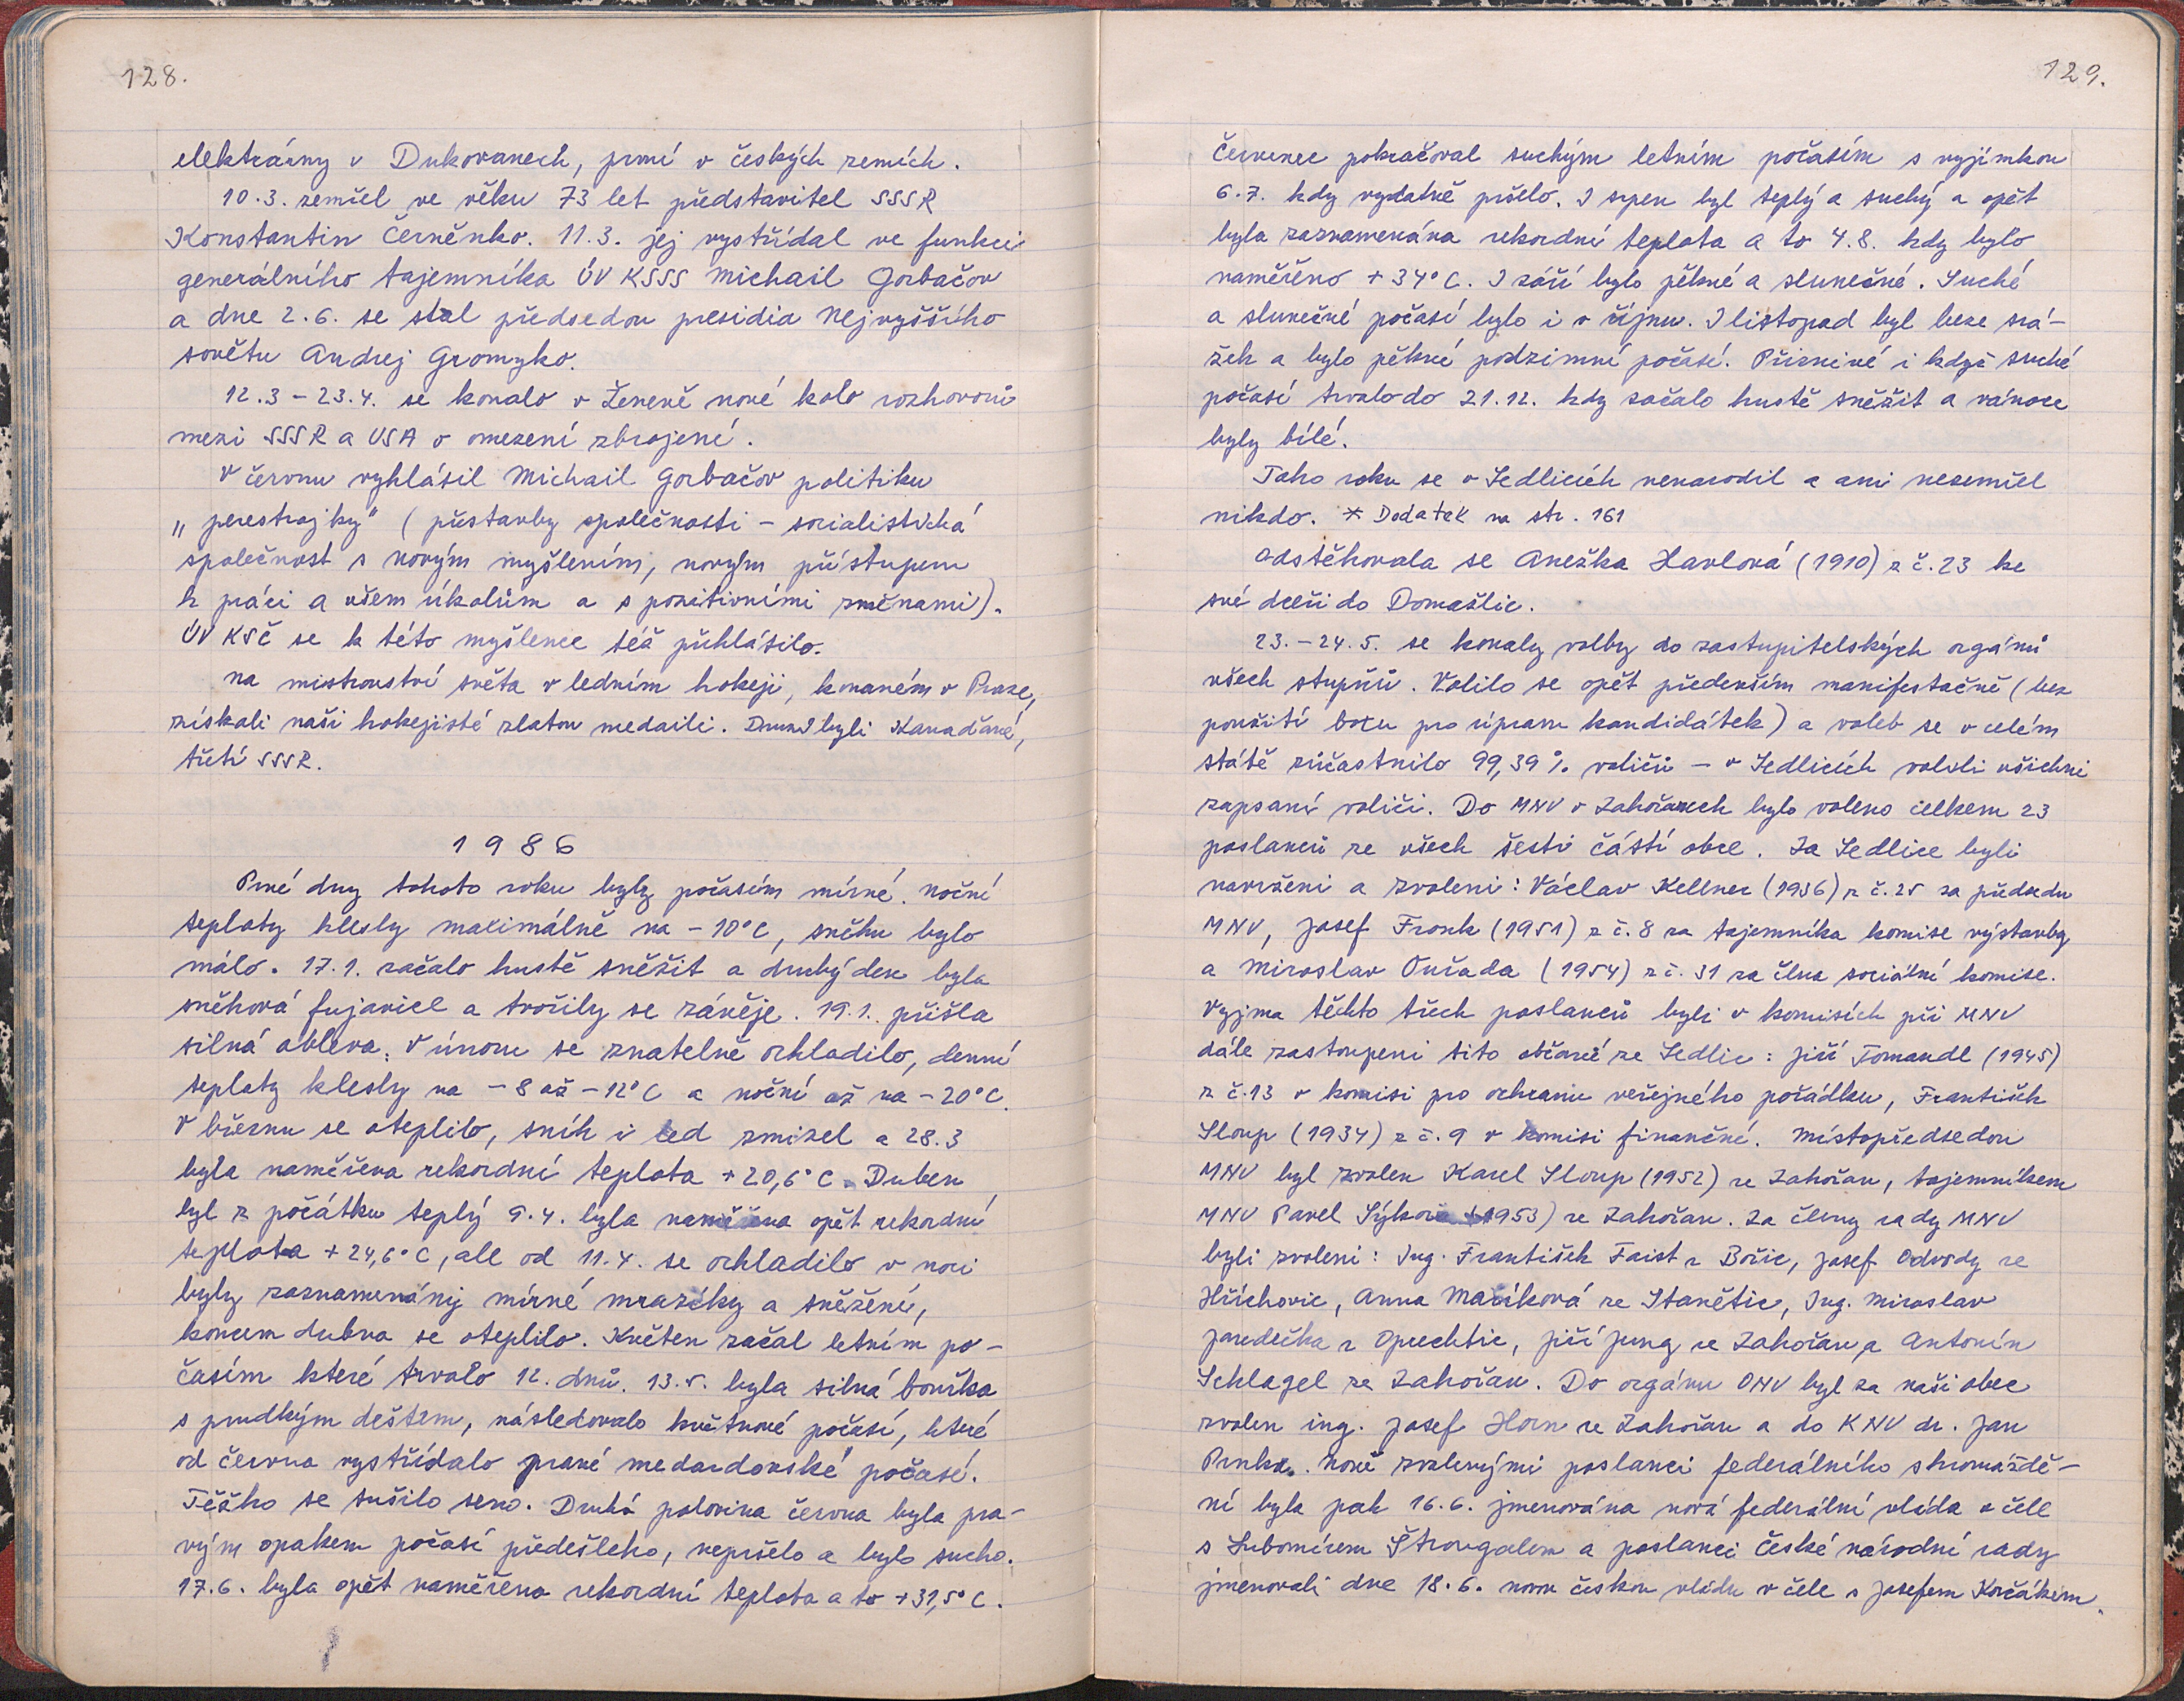 128.
elektrárny v Dukovanech, první v českých zemích.
10.3. zemřel ve věku 73 let představitel SSSR
Konstantin Černěnko. 11.3. jej vystřídal ve funkci
generálního tajemníka ÚV KSSS Michail Gorbačov
a dne 2.6. se stal předsedou presidia Nejvyššího
sovětu Andrej Gromyko.
12.3 - 23.4. se konalo v Ženevě nové kolo rozhovorů
mezi SSSR a USA o omezení zbrojení.
V červnu vyhlásil Michail Gorbačov politiku
„perestrojky" (přestavby společnosti - socialistická
společnost s novým myšlením, novým přístupem
k práci a všem úkolům a s pozitivními změnami).
ÚV KSČ se k této myšlence též přihlásilo.
Na mistrovství světa v ledním hokeji, konaném v Praze,
získali naši hokejisté zlatou medaili. Druzí byli Kanaďané,
třetí SSSR.
1986
Prvé dny tohoto roku byly počasím mírné. Noční
teploty klesly maximálně na -10°C, sněhu bylo
málo. 17.1. začalo hustě sněžit a druhý den byla
sněhová fujavice a tvořily se závěje. 19.1. přišla
silná obleva. V únoru se znatelně ochladilo, denní
teploty klesly na -8 až -12°C a noční až na -20°C.
V březnu se oteplilo, sníh i led zmizel a 28.3
byla naměřena rekordní teplota +20,6°C. Duben
byl z počátku teplý 9.4. byla naměřena opět rekordní
teplota +24,6°C, ale od 11.4. se ochladilo v noci
byly zaznamenány mírné mrazíky a sněžení,
koncem dubna se oteplilo. Květen začal letním po-
časím které trvalo 12. dnů. 13.5. byla silná bouřka
s prudkým deštem, následovalo květnové počasí, které
od června vystřídalo pravé medardovské počasí.
Těžko se sušilo seno. Druhá polovina června byla pra-
vým opakem počasí předešlého, nepršelo a bylo sucho.
17.6. byla opět naměřena rekordní teplota a to +31,5°C.
129.
Červenec pokračoval suchým letním počasím s vyjímkou
6.7. kdy vydatně pršelo. I srpen byl teplý a suchý a opět
byla zaznamenána rekordní teplota a to 4.8. kdy bylo
naměřeno +34°C. I září bylo pěkné a slunečné. Suché
a slunečné počasí bylo i v říjnu. I listopad byl beze srá-
žek a bylo pěkné podzimní počasí. Příznivé i když suché
počasí trvalo do 21.12. kdy začalo hustě sněžit a vánoce
byly bílé.
Toho roku se v Sedlicích nenarodil a ani nezemřel
nikdo. * Dodatek na str. 161
Odstěhovala se Anežka Havlová (1910) z č. 23 ke
své dceři do Domažlic.
23.-24.5. se konaly volby do zastupitelských orgánů
všech stupňů. Volilo se opět především manifestačně (bez
použití boxu pro úpravu kandidátek) a voleb se v celém
státě zúčastnilo 99,39% voličů - v Sedlicích volili všichni
zapsaní voliči. Do MNV v Zahořanech bylo voleno celkem 23
poslanců ze všech šesti částí obce. Za Sedlice byli
navrženi a zvoleni: Václav Kellner (1936) z č. 25 za předsedu
MNV, Josef Fronk (1951) z č. 8 za tajemníka komise výstavby
a Miroslav Ouřada (1954) z č. 31 za člena sociální komise.
Vyjma těchto třech poslanců byli v komisích při MNV
dále zastoupeni tito občané ze Sedlic: Jiří Tomandl (1945)
z č. 13 v komisi pro ochranu veřejného pořádku, František
Sloup (1934) z č. 9 v komisi finanční. Místopředsedou
MNV byl zvolen Karel Sloup (1952) ze Zahořan, tajemníkem
MNV Pavel Sýkora (1953) ze Zahořan. Za členy rady MNV
byli zvoleni: Ing. František Faist z Bořic, Josef Odvody ze
Hříchovic, Anna Macíková ze Stanětic, Ing. Miroslav
Jaredečka z Oprechtic, Jiří Jung ze Zahořan a Antonín
Schlagel ze Zahořan. Do orgánu ONV byl za naši obec
zvolen ing. Josef Horn ze Zahořan a do KNV dr. Jan
Prnka. Nově zvolenými poslanci federálního shromáždě-
ní byla pak 16.6. jmenována nová federální vláda v čele
s Lubomírem Štrougalem a poslanci České národní rady
jmenovali dne 18.6. novou českou vládu v čele s Josefem Korčákem.